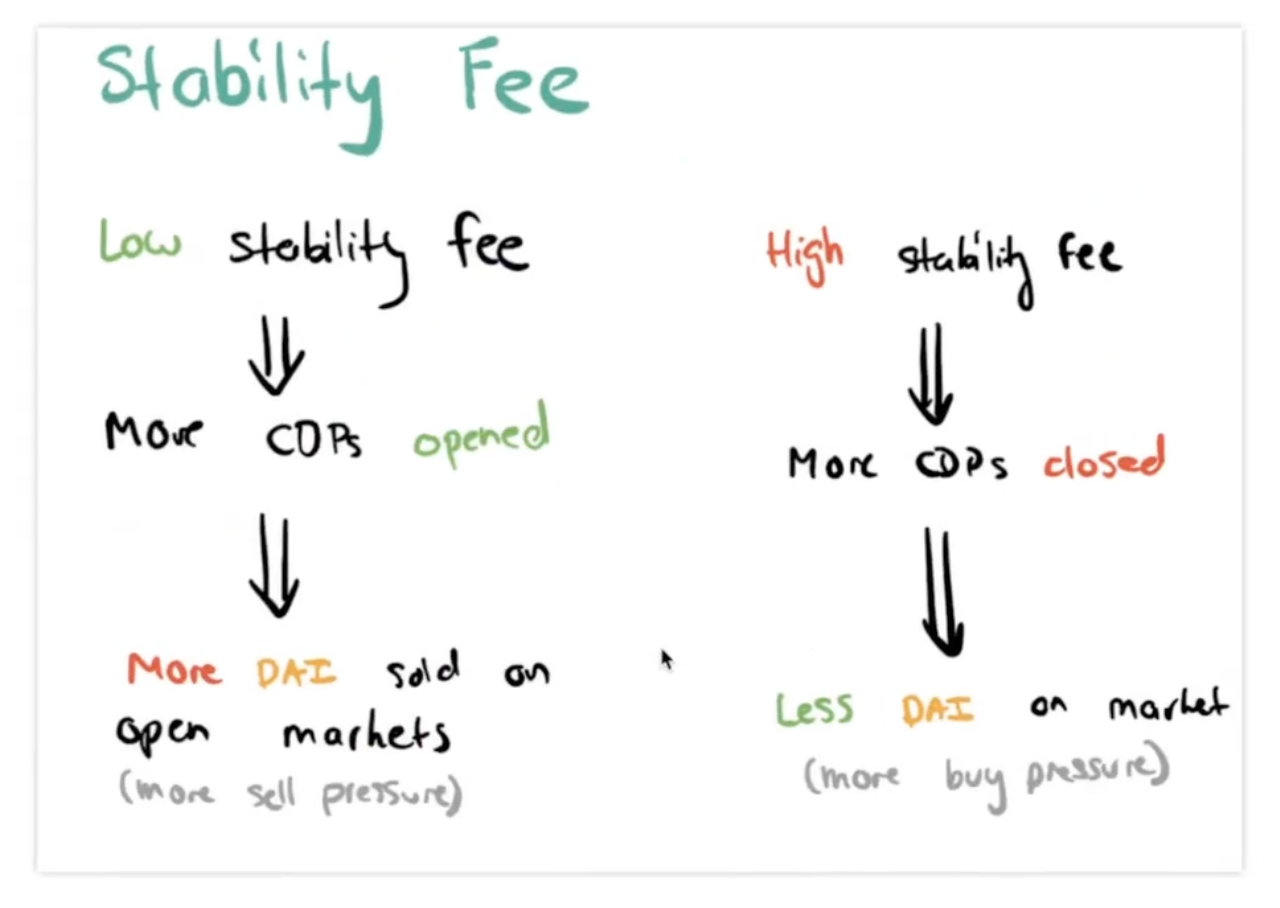 Stability Fee
Low stability fee
More CDPs opened
More DAI sold on
open markets
(more sell pressure)
High stability fee
More CDPs closed
Less DAI on market
(more buy pressure)